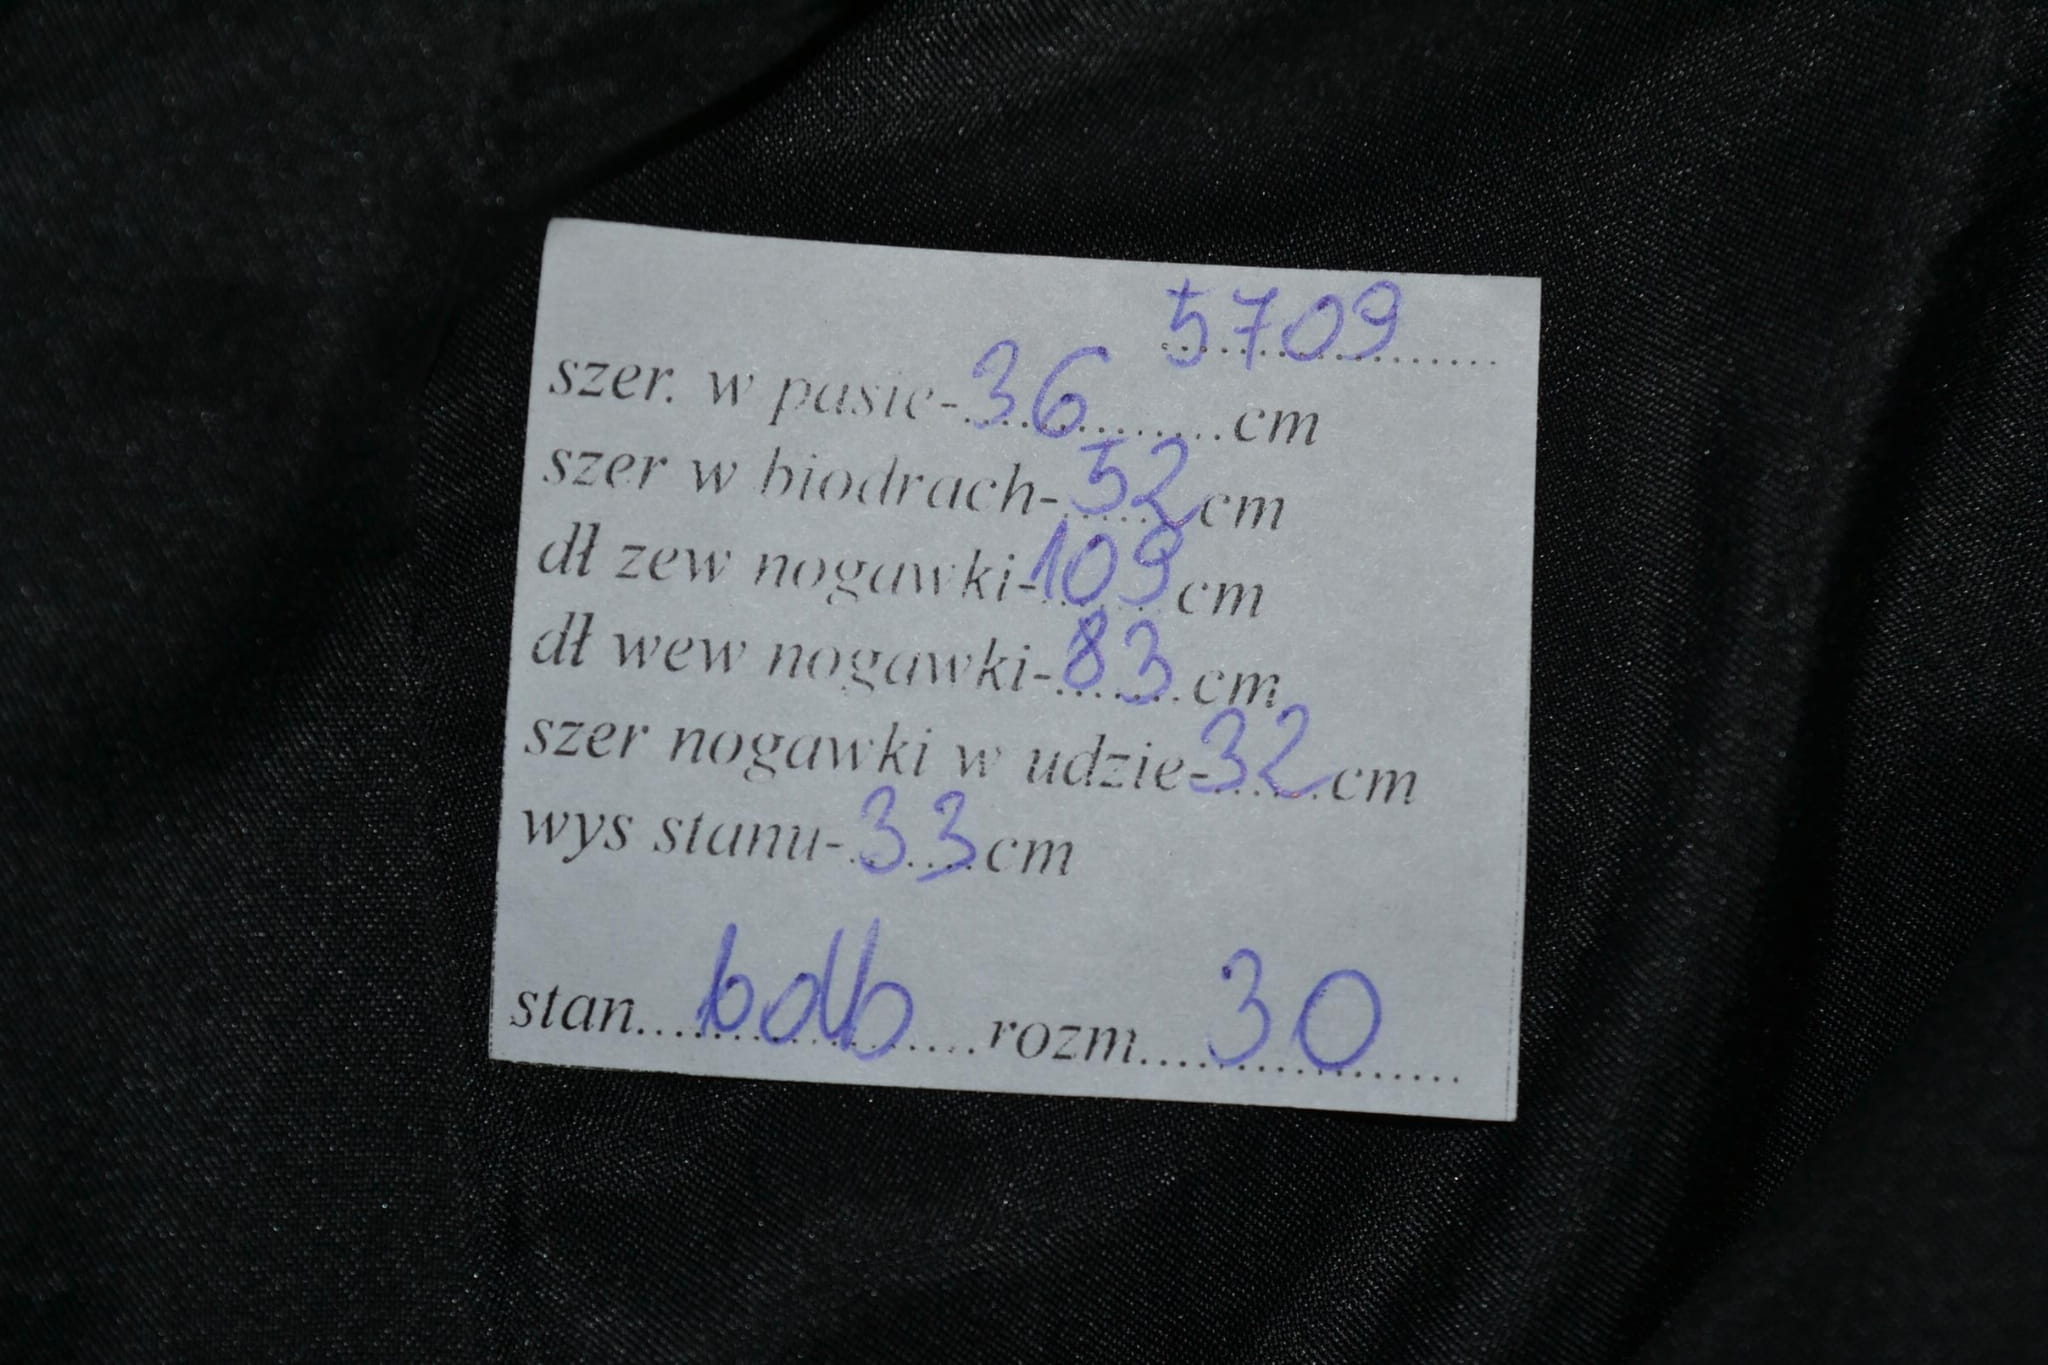 5709
szer. w pasie-36cm
szer w biodrach-52cm
dł zew nogawki-109cm
dł wew nogawki-83cm
szer nogawki w udzie-32cm
wys stanu-33cm
stan....bdb....rozm....30